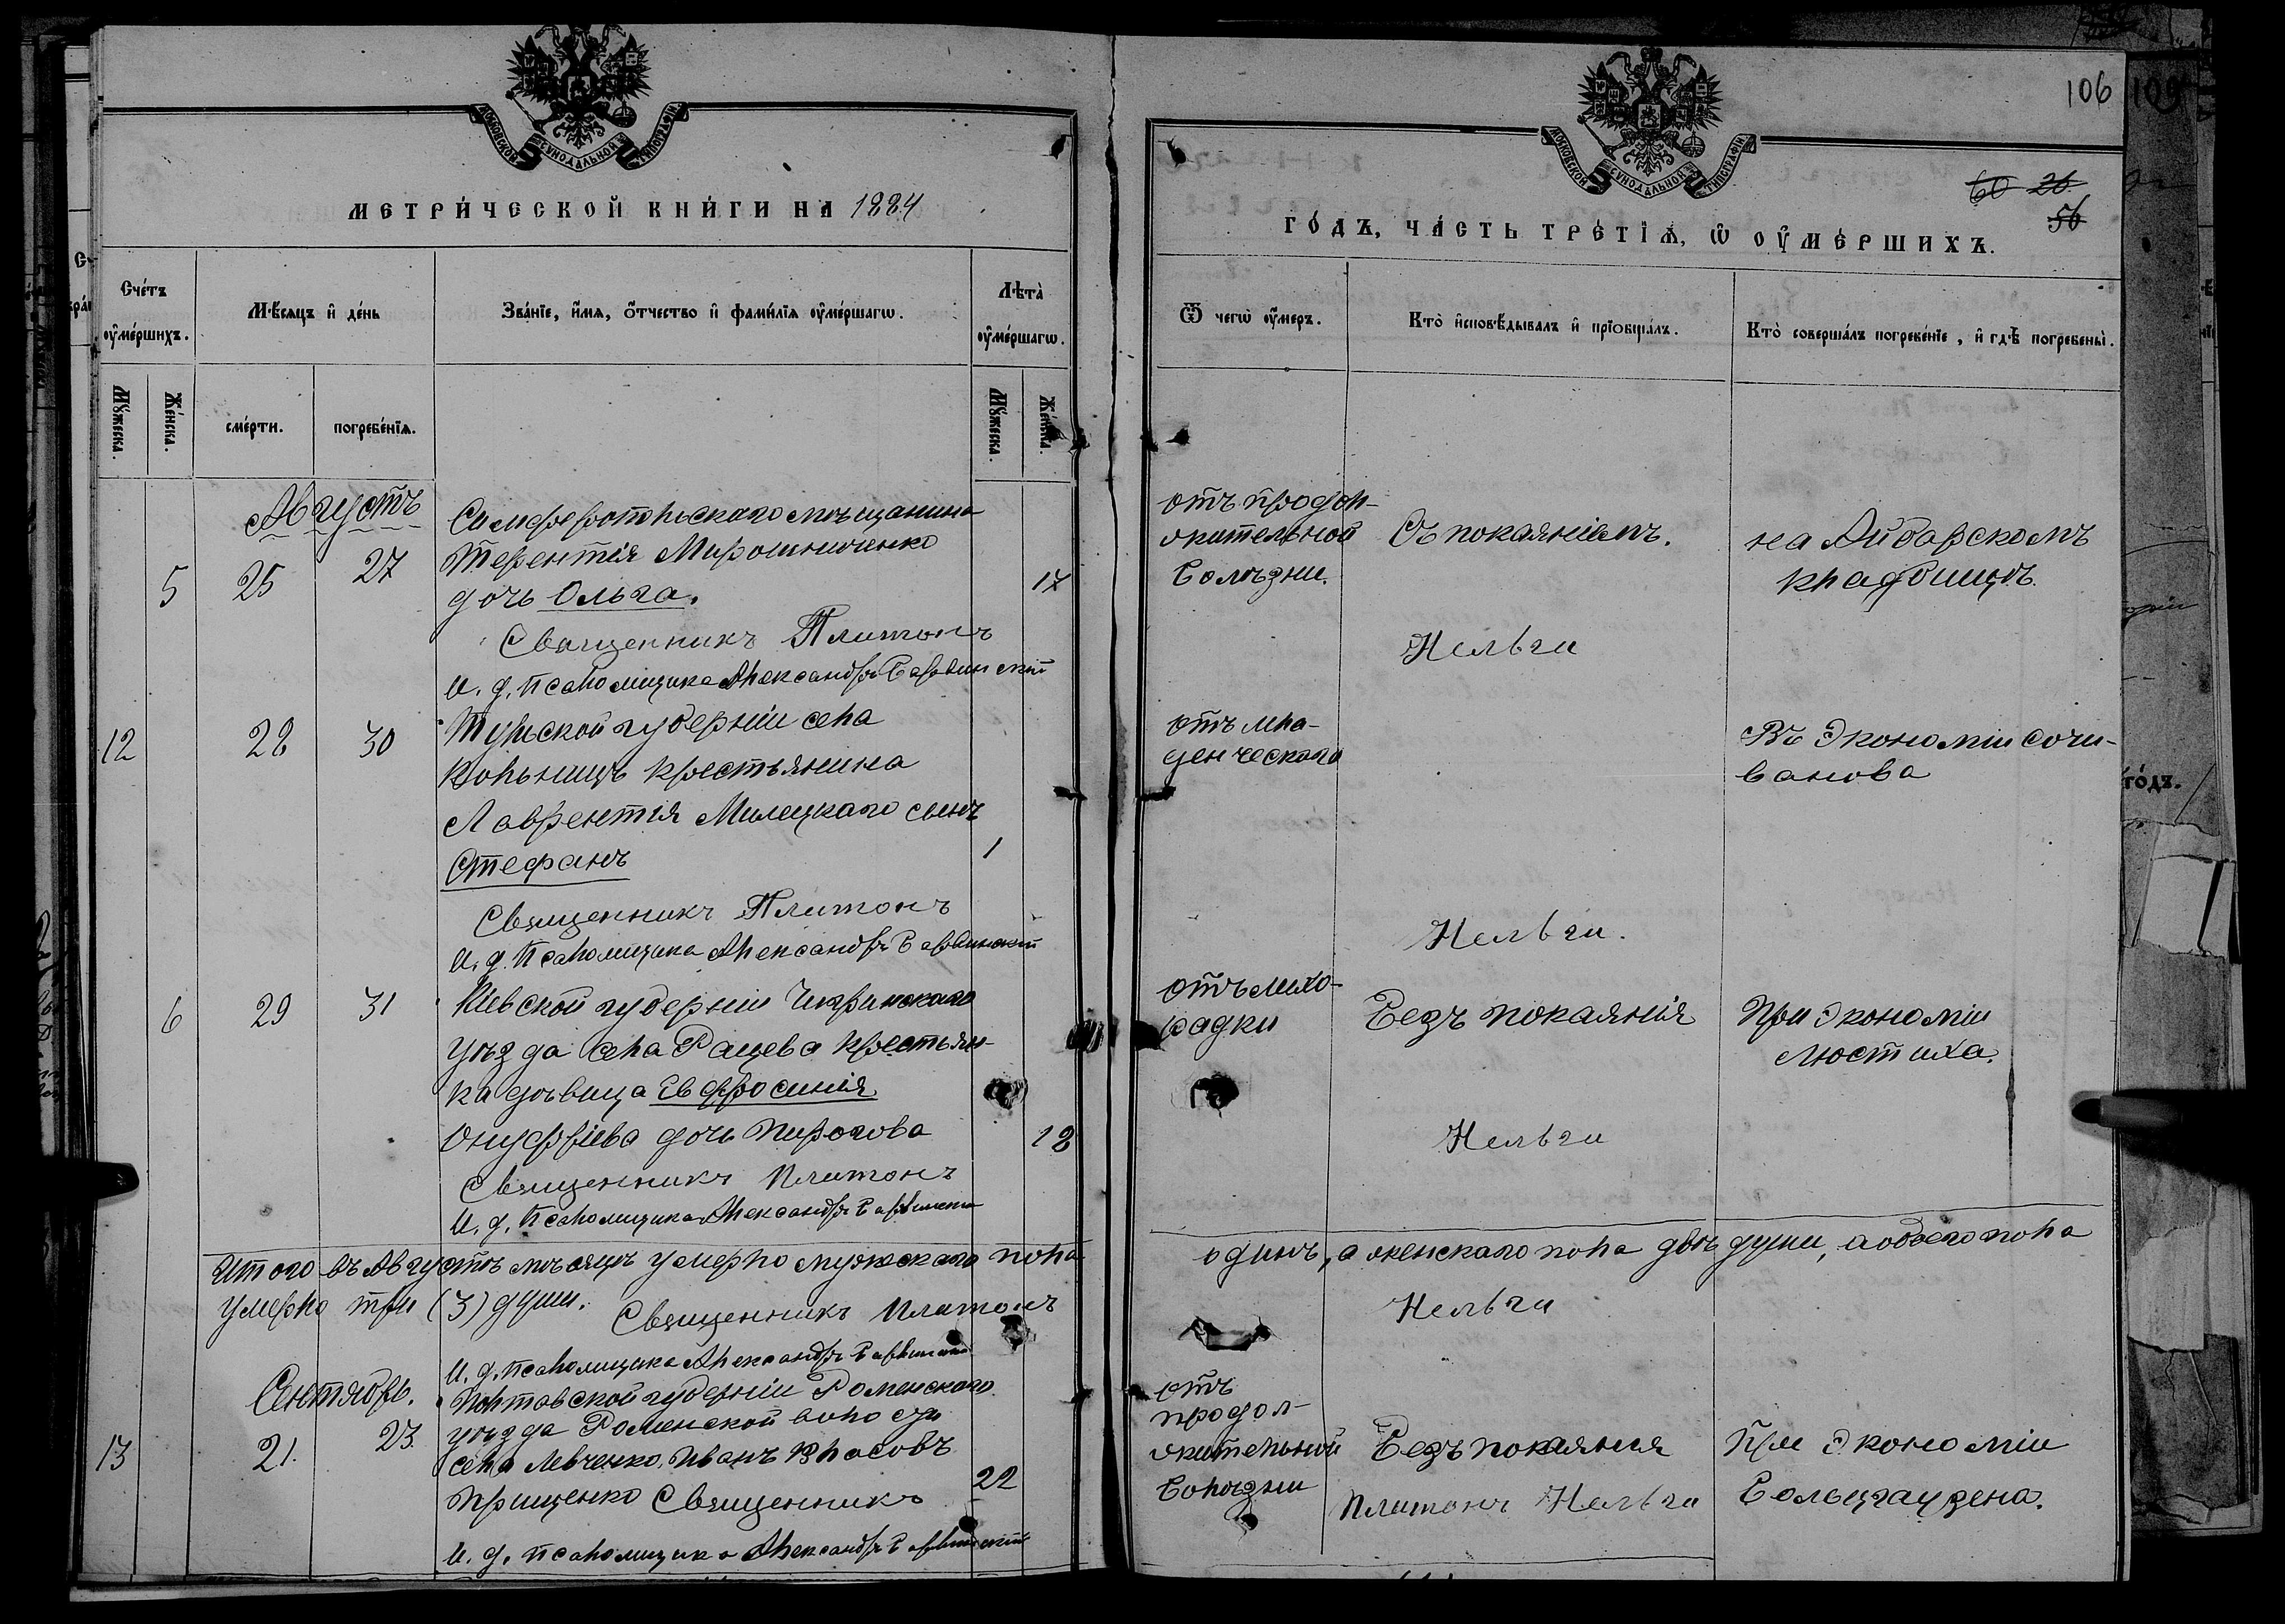 МОСКОВСКОЙ СѴНОДАЛЬНОЙ ТИПОГРАФІИ
МЕТРИ́ЧЕСКОЙ КНИ́ГИ НА 1884
Сче́тъ ᲂу҆ме́ршихъ.
Мѣ́сяцъ и҆ де́нь
Зва́нїе, и҆́мѧ, ѻ҆́тчество и҆ фами́лїѧ ᲂу҆ме́ршагѡ.
Лѣ́та ᲂу҆ме́ршагѡ.
Мꙋ́жеска.
Же́нска.
сме́рти.
погребе́нїѧ.
Мꙋ́жеска.
Же́нска.
Августъ
5 25 27
Симферопольскаго мѣщанина
Терентія Мирошниченко
дочь Ольга.
17
Священникъ Платонъ
И. д. псаломщика Александръ Барвинскій
12 28 30
Тульской губерніи села
крестьянина
Лаврентія Милецкаго сынъ
Стефанъ
1
Священникъ Платонъ
И. д. Псаломщика Александръ Барвинскій
6 29 31
Кіевской губерніи Чигринскаго
уѣзда села Рацева крестьян-
ка дѣвица Евфросинія
Онуфріева дочь Пирогова
18
Священникъ Платонъ
И. д. Псаломщика Александръ Барвинскій
Итого въ Августѣ мѣсяцѣ умерло мужскаго пола
умерло три (3) души. Священникъ Платонъ
И. д. псаломщика Александръ Барвинскій
Сентябрь.
13 21. 23.
Полтавской губерніи Роменскаго
уѣзда Роменской волости
села Левченко, Иванъ Власовъ
Прищенко Священникъ
22
И. д. псаломщика Александръ Барвинскій
106
109
МОСКОВСКОЙ СѴНОДАЛЬНОЙ ТИПОГРАФІИ
60 26
56
ГО́ДЪ, ЧА́СТЬ ТРЕ́ТЇѦ, Ѡ҆ ОУ҆МЕ́РШИХЪ.
Ѿ чегѡ̀ ᲂу҆́меръ.
Кто̀ и҆сповѣ́дывалъ и҆ прїѡбща́лъ.
Кто̀ соверша́лъ погребе́нїе, и҆ гдѣ̀ погребены̀.
отъ продол-
жительной
болѣзни.
Съ покаяніемъ.
на Айбарскомъ
кладбищѣ.
Нельги
отъ мла-
денческаго
Въ Экономіи Сочи-
ванова
Нельги.
отъ лихо-
радки
Безъ покаянія
При Экономіи
Люстиха.
Нельги
одинъ, а женскаго пола двѣ души, а обоего пола
Нельги
отъ
продол-
жительной
болѣзни
Безъ покаянія
Платонъ Нельги
При Экономіи
Гольцгаузена.
го́дъ.